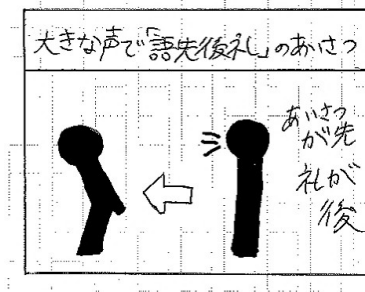 大きな声で「語先後礼」のあいさつ
あいさつ
が先
礼が
後